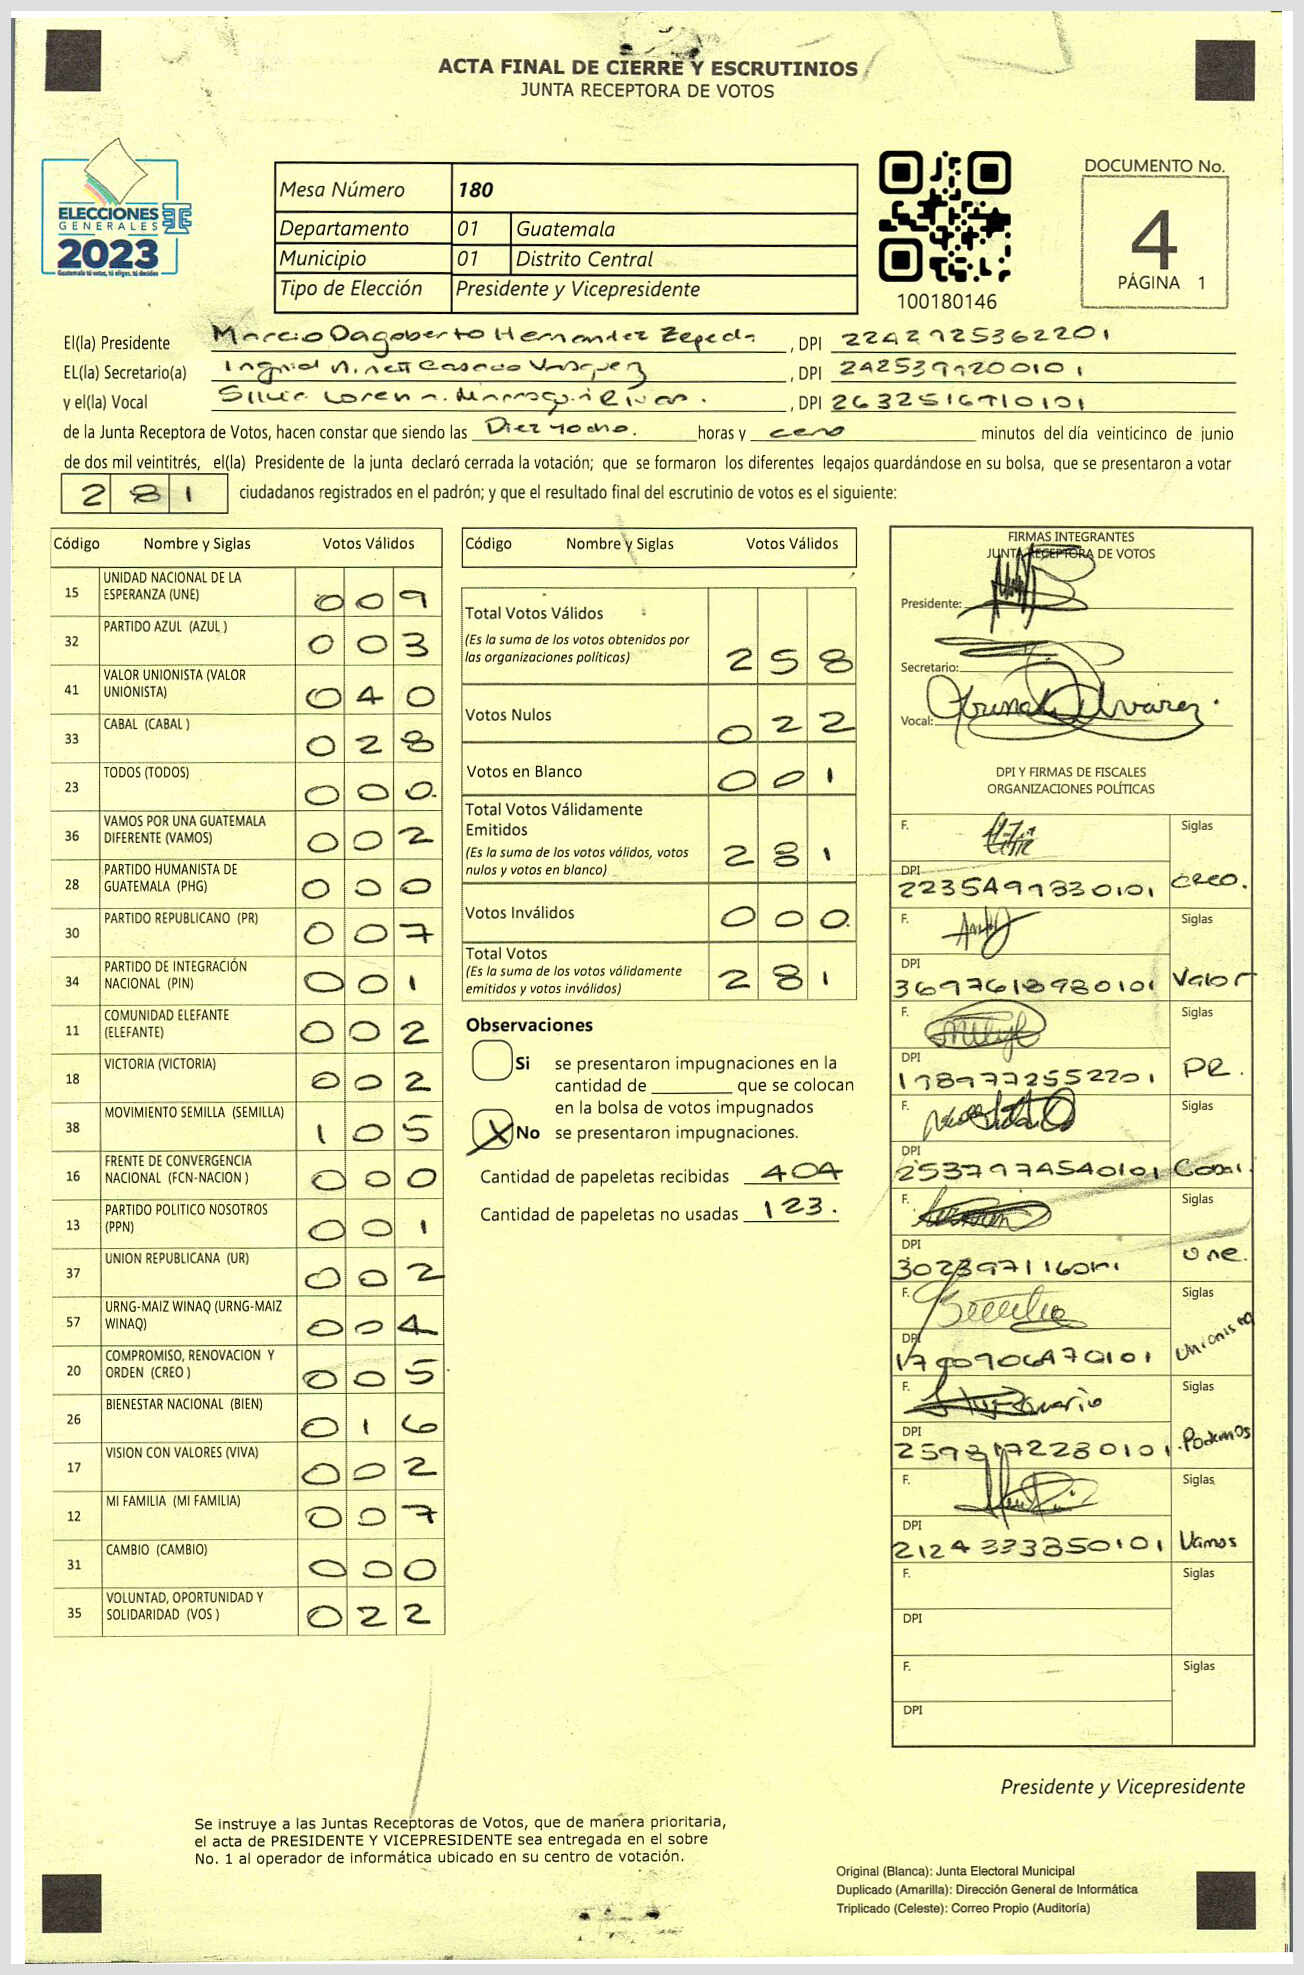 ACTA FINAL DE CIERRE Y ESCRUTINIOS
JUNTA RECEPTORA DE VOTOS
ELECCIONES
GENERALES
2023
Guatemala tú votas, tú eliges, tú decides
Mesa Número 180
Departamento 01 Guatemala
Municipio 01 Distrito Central
Tipo de Elección Presidente y Vicepresidente
100180146
DOCUMENTO No.
4
PÁGINA 1
El(la) Presidente Marcio Dagoberto Hernandez Zepeda, DPI 2242925362201
EL(la) Secretario(a) Ingrid Vasquez, DPI 2425399200101
y el(la) Vocal Silvia Lorena Marroquin Rivas., DPI 2632516910101
de la Junta Receptora de Votos, hacen constar que siendo las Diez yocho. horas y cero minutos del día veinticinco de junio
de dos mil veintitrés, el(la) Presidente de la junta declaró cerrada la votación; que se formaron los diferentes legajos guardándose en su bolsa, que se presentaron a votar
281 ciudadanos registrados en el padrón; y que el resultado final del escrutinio de votos es el siguiente:
Código Nombre y Siglas Votos Válidos
15 UNIDAD NACIONAL DE LA ESPERANZA (UNE) 009
32 PARTIDO AZUL (AZUL ) 003
41 VALOR UNIONISTA (VALOR UNIONISTA) 040
33 CABAL (CABAL ) 028
23 TODOS (TODOS) 000.
36 VAMOS POR UNA GUATEMALA DIFERENTE (VAMOS) 002
28 PARTIDO HUMANISTA DE GUATEMALA (PHG) 000
30 PARTIDO REPUBLICANO (PR) 007
34 PARTIDO DE INTEGRACIÓN NACIONAL (PIN) 001
11 COMUNIDAD ELEFANTE (ELEFANTE) 002
18 VICTORIA (VICTORIA) 002
38 MOVIMIENTO SEMILLA (SEMILLA) 105
16 FRENTE DE CONVERGENCIA NACIONAL (FCN-NACION ) 000
13 PARTIDO POLITICO NOSOTROS (PPN) 001
37 UNION REPUBLICANA (UR) 002
57 URNG-MAIZ WINAQ (URNG-MAIZ WINAQ) 004
20 COMPROMISO, RENOVACION Y ORDEN (CREO ) 005
26 BIENESTAR NACIONAL (BIEN) 016
17 VISION CON VALORES (VIVA) 002
12 MI FAMILIA (MI FAMILIA) 007
31 CAMBIO (CAMBIO) 000
35 VOLUNTAD, OPORTUNIDAD Y SOLIDARIDAD (VOS ) 022
Código Nombre y Siglas Votos Válidos
Total Votos Válidos
(Es la suma de los votos obtenidos por las organizaciones políticas) 258
Votos Nulos 022
Votos en Blanco 001
Total Votos Válidamente Emitidos
(Es la suma de los votos válidos, votos nulos y votos en blanco) 281
Votos Inválidos 000.
Total Votos
(Es la suma de los votos válidamente emitidos y votos inválidos) 281
Observaciones
Si se presentaron impugnaciones en la
cantidad de ________ que se colocan
en la bolsa de votos impugnados
X No se presentaron impugnaciones.
Cantidad de papeletas recibidas 404
Cantidad de papeletas no usadas 123.
FIRMAS INTEGRANTES
JUNTA RECEPTORA DE VOTOS
Presidente:
Secretario:
Vocal:
DPI Y FIRMAS DE FISCALES
ORGANIZACIONES POLÍTICAS
F. Siglas
DPI 2235499330101 CREO.
F. Siglas
DPI 3697618980101 Valor
F. Siglas
DPI 1789772552201 PR.
F. Siglas
DPI 2537974540101 Cabal.
F. Siglas
DPI Une.
F. Siglas
DPI 1780906470101 Unionista
F. Siglas
DPI 2593172280101. Podemos
F. Siglas
DPI 2124333350101 Vamos
F. Siglas
DPI
F. Siglas
DPI
Presidente y Vicepresidente
Se instruye a las Juntas Receptoras de Votos, que de manera prioritaria,
el acta de PRESIDENTE Y VICEPRESIDENTE sea entregada en el sobre
No. 1 al operador de informática ubicado en su centro de votación.
Original (Blanca): Junta Electoral Municipal
Duplicado (Amarilla): Dirección General de Informática
Triplicado (Celeste): Correo Propio (Auditoría)